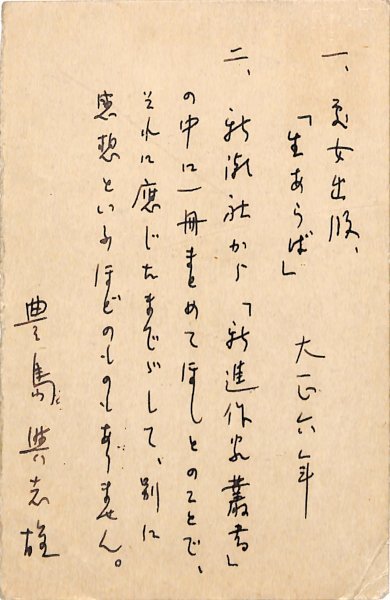 一、處女出版、
「生あらば」 大正六年
二、新潮社から「新進作家叢書」
の中に一冊まとめてほしとのことで、
それに應じたまでゞして、別に
感想といふほどのものもありません。
豊島與志雄